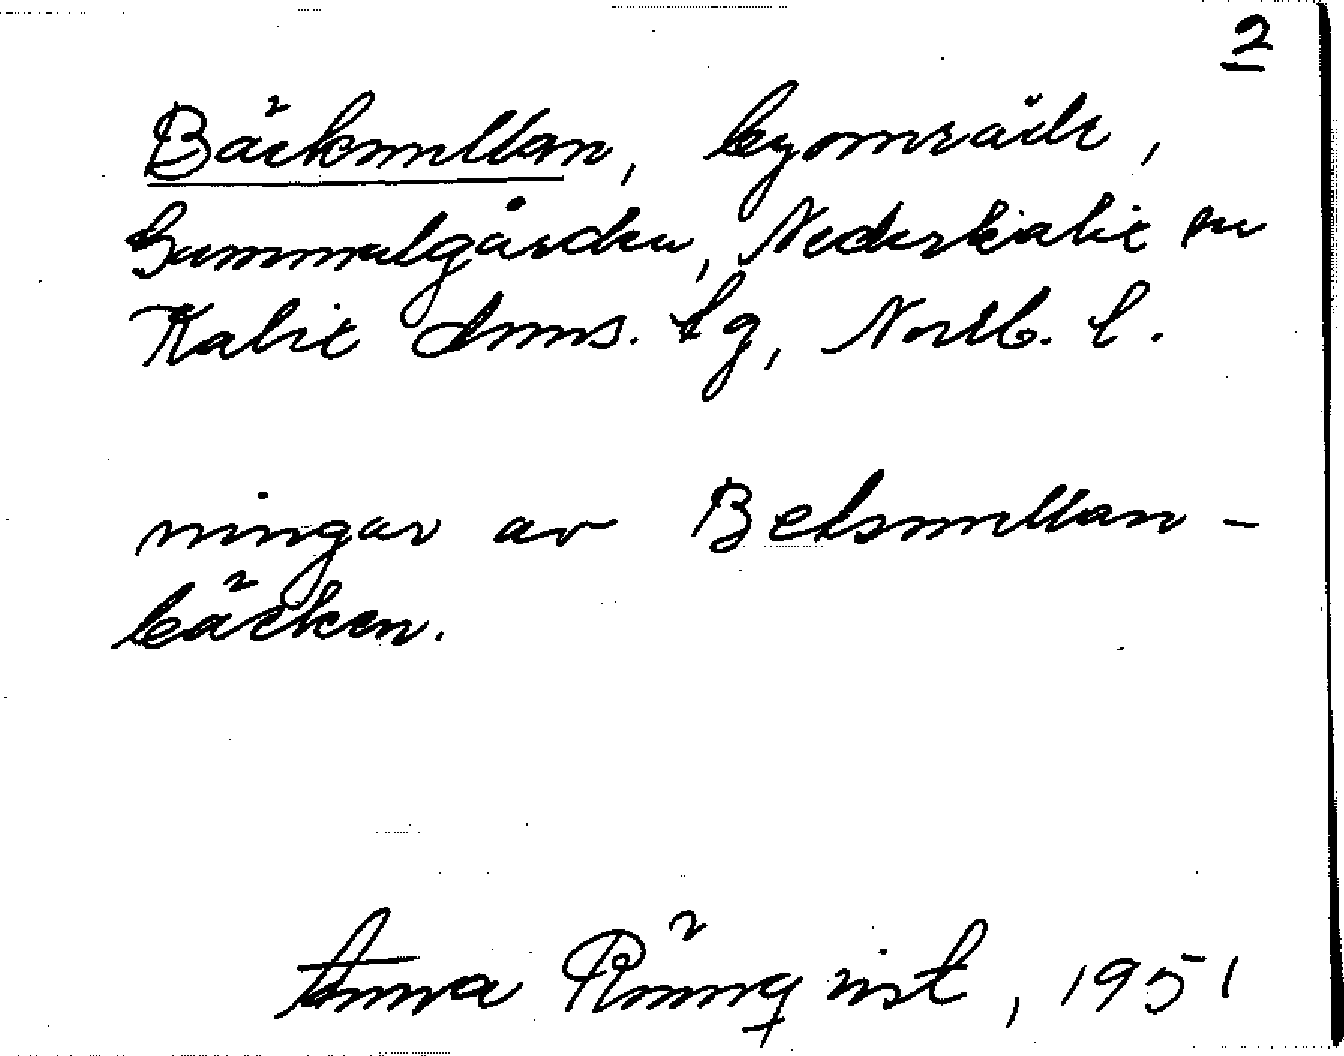 2
Bäckmellan, byområde,
Gammelgården, Nederkalix sn
Kalix tg, Norrb. l.
ningar av Betsmellan-
bäcken.
Anna Rönnqvist, 1951